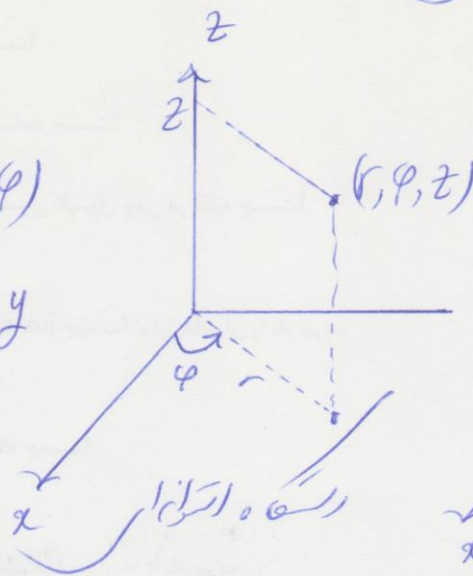 z
z
φ)
(r, φ, z)
y
φ r
x
دستگاه استوانه‌ای
x